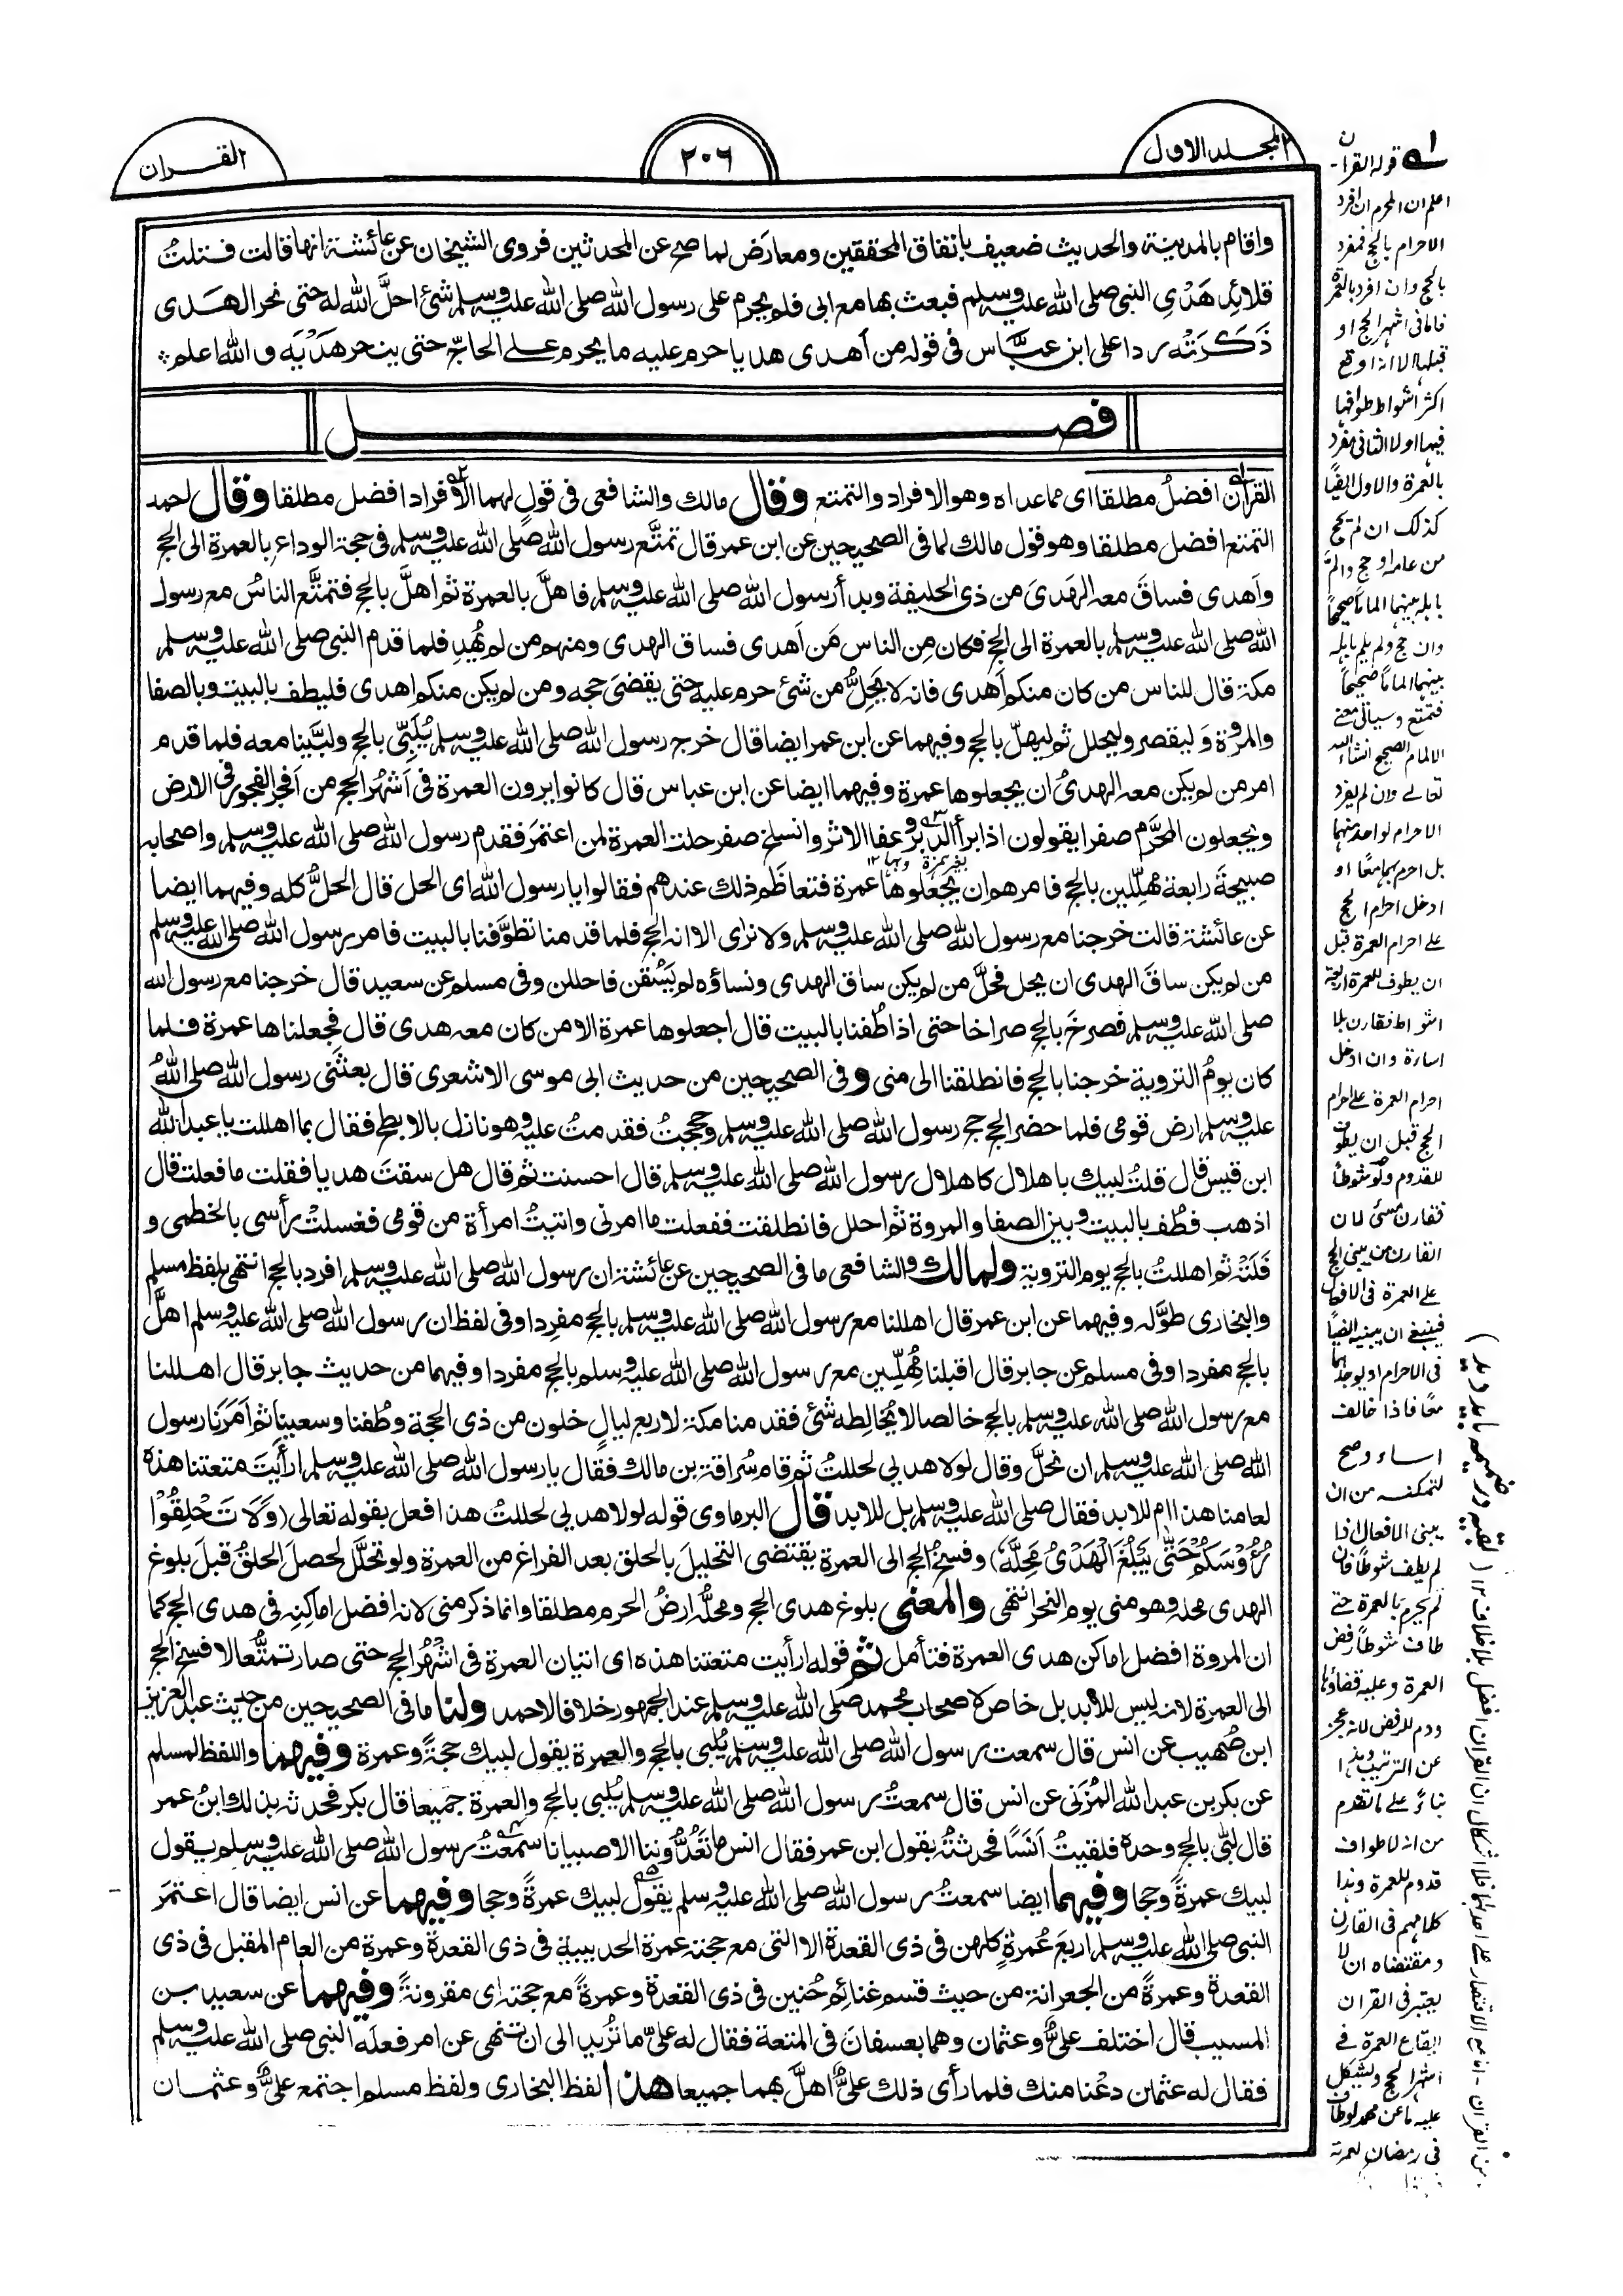 المجلد الاول
٢٠٦
القران
واقام بالمدينة والحديث ضعيف باتفاق المحققين ومعارَض لما صح عن المحدثين فروى الشيخان عن عائشة انها قالت فتلتُ
قلائد هَدْىِ النبى صلى الله عليه وسلم فبعث بها مع ابى فلم يحرم على رسول الله صلى الله عليه وسلم شئ احلَّ الله له حتى نحر الهَدى
ذَكَرَتْه ردا على ابن عبَّاس فى قوله من أهدى هديا حرم عليه ما يحرم على الحاجّ حتى ينحر هَدْيَه والله اعلم
فصل
القران افضلُ مطلقا اى مما عداه وهو الافراد والتمتع وقال مالك والشافعى فى قولٍ لهما الافراد افضل مطلقا وقال احمد
التمتع افضل مطلقا وهو قول مالك لما فى الصحيحين عن ابن عمر قال تمتَّع رسول الله صلى الله عليه وسلم فى حجة الوداع بالعمرة الى الحج
وأهدى فساقَ معه الهَدىَ من ذى الحليفة وبدأ رسول الله صلى الله عليه وسلم فاهلَّ بالعمرة ثم اهلَّ بالحج فتمتَّع الناسُ مع رسول
الله صلى الله عليه وسلم بالعمرة الى الحج فكان مِن الناس مَن أهدى فساق الهدى ومنهم من لم يُهدِ فلما قدم النبى صلى الله عليه وسلم
مكة قال للناس من كان منكم أهدى فانه لا يَحِلُّ من شئ حرم عليه حتى يقضىَ حجه ومن لم يكن منكم اهدى فليطف بالبيت وبالصفا
والمروة وَليقصر وليحلل ثم ليهلّ بالحج وفيهما عن ابن عمر ايضا قال خرج رسول الله صلى الله عليه وسلم يُلَبِّى بالحج ولبَّينا معه فلما قدم
امر من لم يكن معه الهدىُ ان يجعلوها عمرة وفيهما ايضا عن ابن عباس قال كانوا يرون العمرة فى أشهُر الحج من أفجر الفجور فى الارض
ويجعلون المحرَّم صفرا يقولون اذا برأ الدَّبَر وعفا الاثر وانسلخ صفر حلت العمرة لمن اعتمَر فقدم رسول الله صلى الله عليه وسلم واصحابه
صبيحةَ رابعة مُهِلِّين بالحج فامرهم ان يجعلوها عمرة فتعاظَم ذلك عندهم فقالوا يا رسول الله اى الحل قال الحلُّ كله وفيهما ايضا
عن عائشة قالت خرجنا مع رسول الله صلى الله عليه وسلم ولا نرى الا انه الحج فلما قدمنا تطوَّفنا بالبيت فامر رسول الله صلى الله عليه وسلم
من لم يكن ساقَ الهدى ان يحل فحَلَّ من لم يكن ساق الهدى ونساؤه لم يَسُقن فاحللن وفى مسلم عن سعيد قال خرجنا مع رسول الله
صلى الله عليه وسلم فصرخَ بالحج صراخا حتى اذا طُفنا بالبيت قال اجعلوها عمرة الا من كان معه هدى قال فجعلناها عمرة فلما
كان يومُ التروية خرجنا بالحج فانطلقنا الى منى وفى الصحيحين من حديث ابى موسى الاشعرى قال بعثَنى رسول الله صلى اللهُ
عليه وسلم ارض قومى فلما حضر الحج حج رسول الله صلى الله عليه وسلم وحججتُ فقدمتُ عليه وهو نازل بالابطح فقال بما اهللت يا عبد الله
ابن قيس قال قلتُ لبيك باهلال كاهلال رسول الله صلى الله عليه وسلم قال احسنت ثم قال هل سقتَ هديا فقلت ما فعلت قال
اذهب فطُف بالبيت وبين الصفا والمروة ثم احلل فانطلقت ففعلت ما امرنى واتيتُ امرأة من قومى فغسلتْ رأسى بالخطمى و
فَلَتْه ثم اهللتُ بالحج يوم التروية ولمالك والشافعى ما فى الصحيحين عن عائشة ان رسول الله صلى الله عليه وسلم افرد بالحج انتهى بلفظ مسلم
والبخارى طوَّله وفيهما عن ابن عمر قال اهللنا مع رسول الله صلى الله عليه وسلم بالحج مفرِدا وفى لفظ ان رسول الله صلى الله عليه وسلم اهلَّ
بالحج مفردا وفى مسلم عن جابر قال اقبلنا مُهِلِّين مع رسول الله صلى الله عليه وسلم بالحج مفردا وفيهما من حديث جابر قال اهللنا
مع رسول الله صلى الله عليه وسلم بالحج خالصا لا يُخالِطه شئ فقدمنا مكة لاربع ليالٍ خلون من ذى الحجة وطُفنا وسعينا ثم أمَرَنا رسول
الله صلى الله عليه وسلم ان نحلَّ وقال لولا هديى لحللتُ ثم قام سُراقة بن مالك فقال يا رسول الله صلى الله عليه وسلم ارأيتَ متعتنا هذه
لعامنا هذا ام للابد فقال صلى الله عليه وسلم بل للابد قال البرماوى قوله لولا هديى لحللتُ هذا افعل بقوله تعالى (وَلَا تَحْلِقُوْا
رُءُوْسَكُمْ حَتّٰى يَبْلُغَ الْهَدْىُ مَحِلَّهٗ) وفسخُ الحج الى العمرة يقتضى التحليل بالحلق بعد الفراغ من العمرة ولو تحلَّل لحصل الحلقُ قبلَ بلوغ
الهدى محله وهو منى يوم النحر انتهى والمعنى بلوغ هدى الحج ومحلُّه ارضُ الحرم مطلقا وانما ذكر منى لانه افضل اماكِنِه فى هدى الحج كما
ان المروة افضل اماكن هدى العمرة فتأمل ثم قوله ارأيت متعتنا هذه اى اتيان العمرة فى اشهُر الحج حتى صار تمتُّعا لا فسخ الحج
الى العمرة لانه ليس للابد بل خاص لاصحاب محمد صلى الله عليه وسلم عند الجمهور خلافا لاحمد ولنا ما فى الصحيحين من حديث عبد العزيز
ابن صُهيب عن انس قال سمعت رسول الله صلى الله عليه وسلم يُلبى بالحج والعمرة يقول لبيك حجةً وعمرة وفيهما واللفظ لمسلم
عن بكر بن عبد الله المُزَنى عن انس قال سمعتُ رسول الله صلى الله عليه وسلم يُلبى بالحج والعمرة جميعا قال بكر فحدثت بذلك ابنَ عمر
قال لبّى بالحج وحده فلقيتُ أنَسًا فحدثتُه بقول ابن عمر فقال انس ما تَعُدُّوننا الا صبيانا سمعتُ رسول الله صلى الله عليه وسلم يقول
لبيك عمرةً وحجا وفيهما ايضا سمعتُ رسول الله صلى الله عليه وسلم يقول لبيك عمرةً وحجا وفيهما عن انس ايضا قال اعتمَرَ
النبى صلى الله عليه وسلم اربعَ عُمرةٍ كلهن فى ذى القعدة الا التى مع حجته عمرة الحديبية فى ذى القعدة وعمرة من العام المقبل فى ذى
القعدة وعمرةً من الجعرانة من حيث قسم غنائم حُنين فى ذى القعدة وعمرةً مع حجته اى مقرونةً وفيهما عن سعيد بن
المسيب قال اختلف علىٌّ وعثمان وهما بعسفانَ فى المتعة فقال له علىّ ما تُريد الى ان تنهى عن امر فعلَه النبى صلى الله عليه وسلم
فقال له عثمان دعْنا منك فلما رأى ذلك علىٌّ اهلَّ بهما جميعا هذا لفظ البخارى ولفظ مسلم اجتمع علىٌّ وعثمان
قوله القران
اعلم ان المحرم ان افرد
الاحرام بالحج فمفرد
بالحج وان افرد بالعمرة
فاما فى اشهر الحج او
قبلها الا انه اوقع
اكثر اشواط طوافها
فيها اولا الثانى مفرد
بالعمرة والاول ايضًا
كذلك ان لم يحج
من عامه او حج والمّ
باهله بينهما الماما صحيحًا
وان حج ولم يلم باهله
بينهما الماما صحيحًا
فتمتع وسيأتى معنى
الالمام الصحيح انشاء الله
تعالے وان لم يفرد
الاحرام لواحد منهما
بل احرم بهما معًا او
ادخل احرام الحج
على احرام العمرة قبل
ان يطوف للعمرة اربعة
اشواط فقارن بلا
اساءة وان ادخل
احرام العمرة على احرام
الحج قبل ان يطوف
للقدوم ولو شوطًا
فقارن مسئ لان
القارن من يبنى الحج
على العمرة فى الافعال
فينبغى ان يبنيه ايضًا
فى الاحرام او يوجدهما
معًا فاذا خالف
اساء وصح
لتمكنه من ان
يبنى الافعال اذا
لم يطف شوطًا فان
لم يحرم بالعمرة حتى
طاف شوطًا رفض
العمرة وعليه قضاؤها
ودم للرفض لانه عجز
عن الترتيب وهذا
بناءً على ما تقدم
من انه لا طواف
قدوم للعمرة وهذا
كلامهم فى القارن
ومقتضاه ان لا
يعتبر فى القران
ايقاع العمرة فى
اشهر الحج ويشكل
عليه ما عن محمد لو طاف
فى رمضان لعمرته